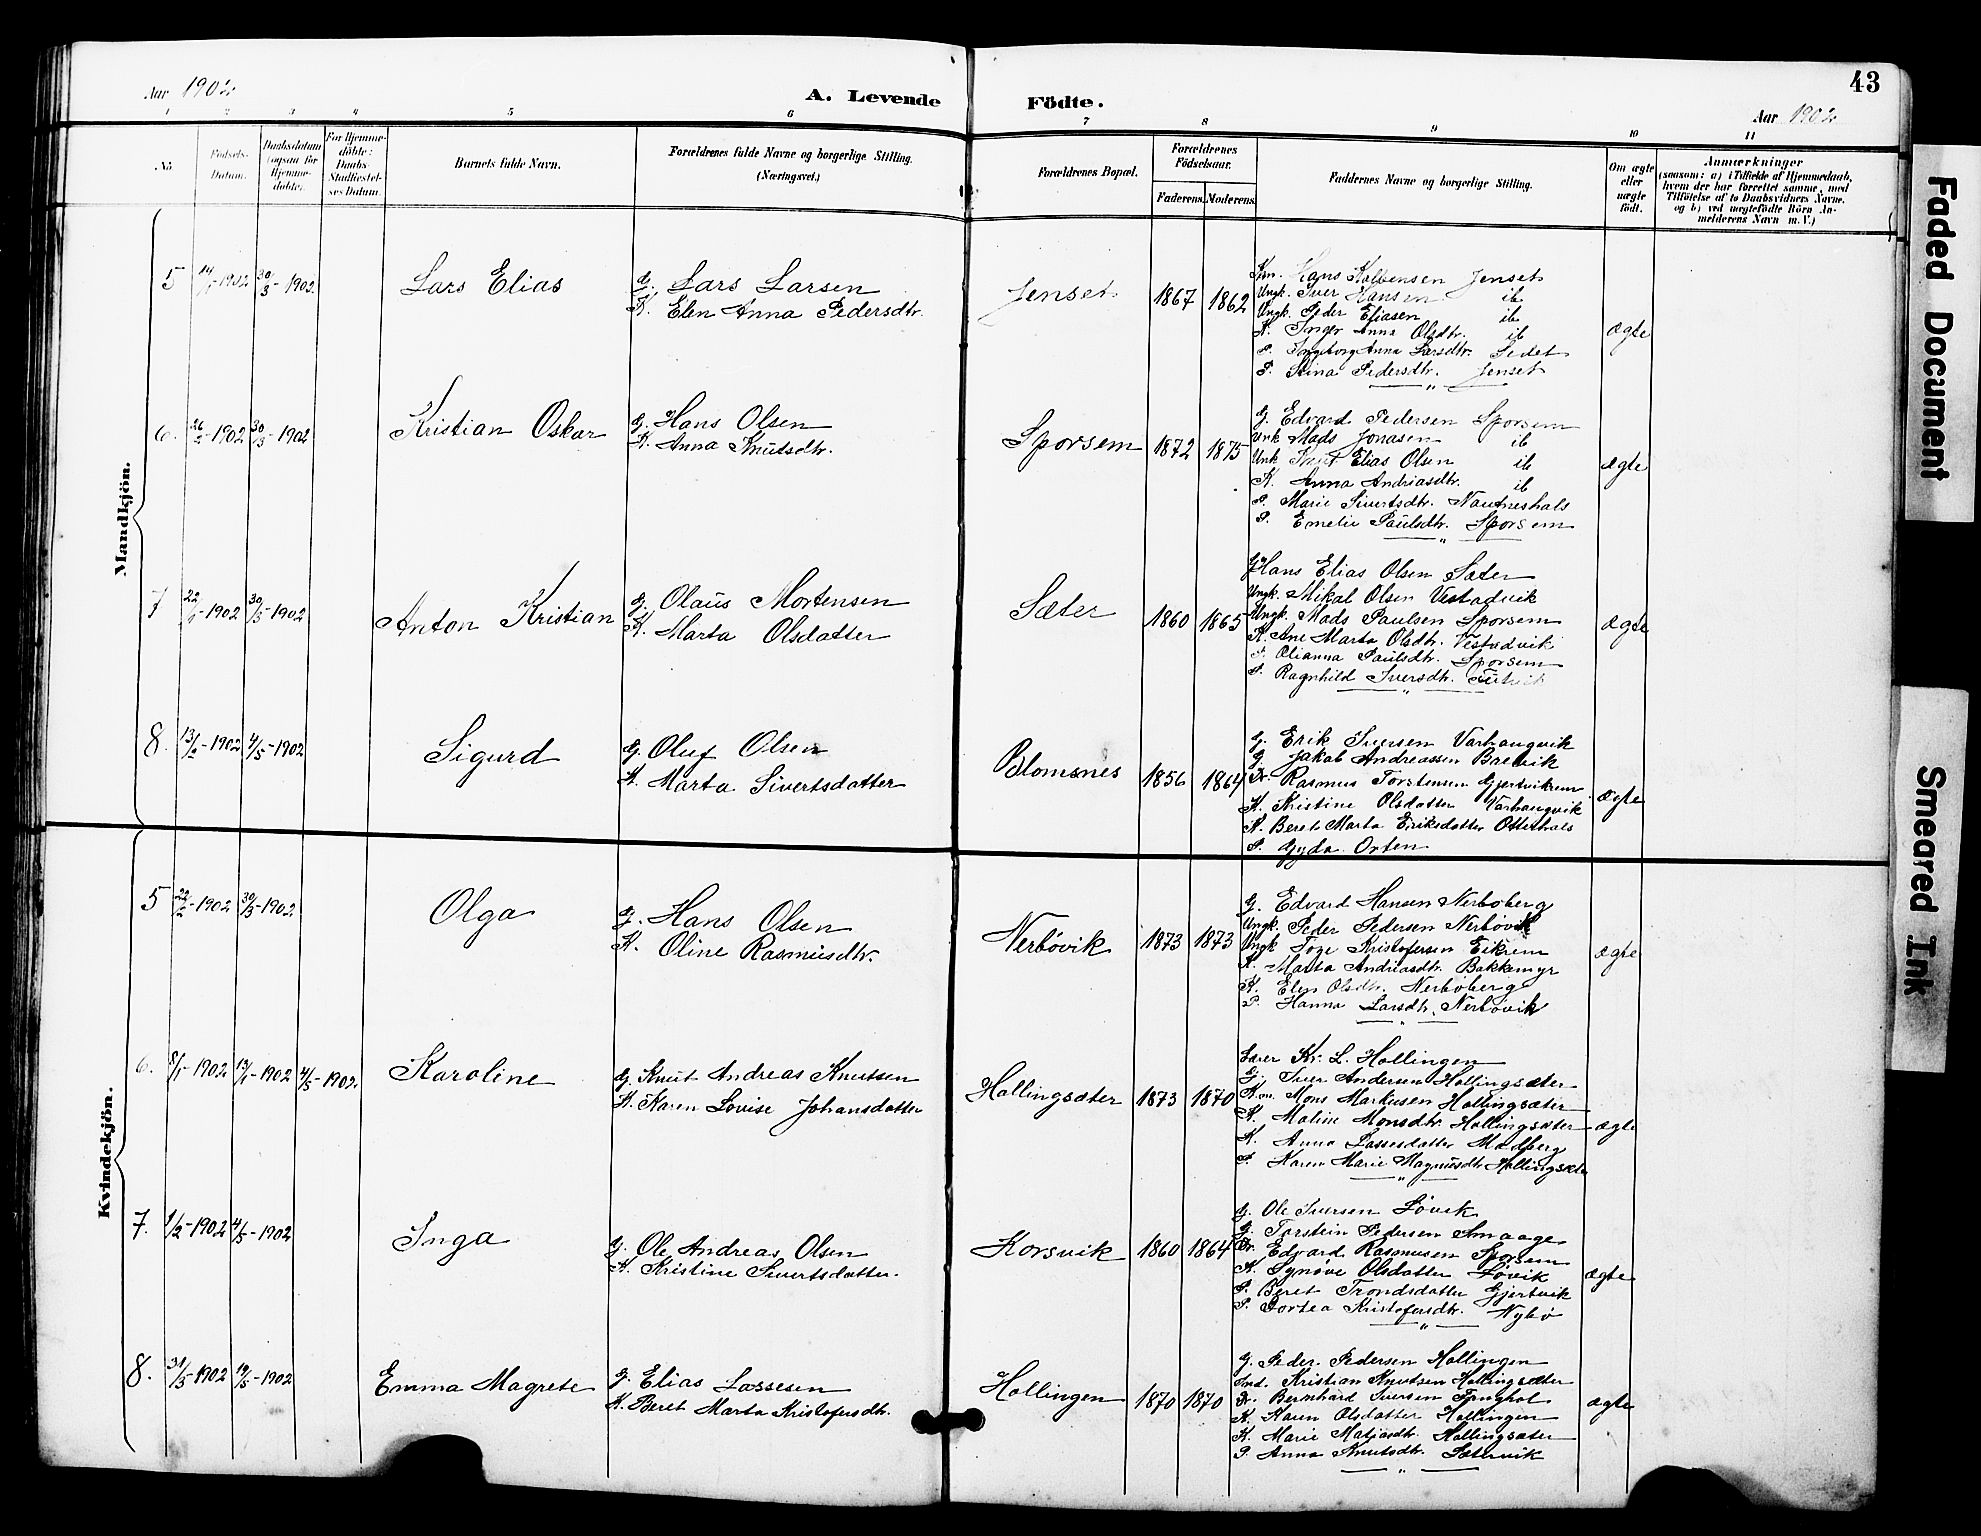 43
Aar 1902.
A. Levende Födte.
Aar 1902.
1 2 3 4 5 6 7 8 9 10 11
No
Födsels-Datum.
Daabsdatum (ogsaa for Hjemme-döbte).
For Hjemme-döbte: Daabs-Stadfæstel-ses Datum.
Barnets fulde Navn.
Forældrenes fulde Navne og borgerlige Stilling. (Næringsvei.)
Forældrenes Bopæl.
Forældrenes Födselsaar.
Faderens. Moderens.
Faddernes Navne og borgerlige Stilling.
Om ægte eller uægte födt.
Anmærkninger
(saasom: a) i Tilfælde af Hjemmedaab,
hvem der har forrettet samme, med
Tilföielse af to Daabsvidners Navne,
og b) ved uægtefödte Börn An-
melderens Navn m. V.)
Mandkjön.
5 1902 30/3-1902. Lars Elias
G. Lars Larsen
K. Elen Anna Pedersdtr.
Jenset 1867 1862
Hans Kolbensen Jenset
Ungk. Iver Hansen ib
Ungk. Peder Eliasen ib
K. Inger Anna Olsdtr. ib
P. Ingeborg Anna Larsdtr. Sedet
P. Stina Pedersdtr. Jenset
ægte
6. 26/2-1902 30/3-1902 Kristian Oskar
G. Hans Olsen
K. Anna Knutsdtr.
Sporsem 1872 1875
G. Edvard Pedersen Sporsem
Unk Mads Jonasen ib
Unk Knut Elias Olsen ib
K. Anna Andriasdtr. ib
P. Marie Sivertsdtr. Nautneshals
P. Emelie Paulsdtr. Sporsem
ægte
7 22/1-1902 30/3-1902 Anton Kristian
G. Olaus Mortensen
K. Marta Olsdatter
Sæter 1860 1865
G. Hans Elias Olsen Sæter
Ungk. Mikal Olsen Vestadvik
Ungk. Mads Paulsen Sporsem
K. Ane Marta Olsdtr. Vestadvik
P. Olianna Paulsdtr. Sporsem
P. Ragnhild Iversdtr.
ægte
8. 13/2-1902 4/5-1902 Sigurd
G. Oluf Olsen
K. Marta Sivertsdatter
Blomsnes 1856 1864
G. Erik Iversen Varhaugvik
G. Jakob Andreassen Barvik
Dr. Rasmus Torstensen Gjertvikrem
K. Kristine Olsdatter Varhaugvik
K. Beret Marta Eriksdatter Otterhals
P. Gyda Orten
ægte
Kvindekjön.
5 22/2-1902 30/3-1902 Olga
G. Hans Olsen
K. Oline Rasmusdtr.
Nerbövik 1873 1873
G. Edvard Hansen Nerböberg
Ungk. Peder Pedersen Nerbövik
Ungk Tore Kristofersen Eikrem
K. Marta Andriasdtr. Bakkemyr
K. Elen Olsdtr. Nerböberg
P. Hanna Larsdtr. Nerbövik
ægte
6. 8/1-1902 12/1-1902 4/5-1902. Karoline
G. Knut Andreas Knutsen
K. Karen Lovise Johansdatter
Hollingsæter 1873 1870
Lærer Kr. L. Hollingen
G. Iver Andersen Hollingsæter
K.m. Mons Markusen Hollingsæter
K. Maline Monsdtr. Hollingsæter
K. Anna Lassesdatter Madberg
P. Karen Marie Magnusdtr Hollingsæter
ægte
7. 1/2-1902 4/5-1902 Inga
G. Ole Andreas Olsen
K. Kristine Sivertsdatter.
Korsvik 1860 1864
G. Ole Iversen Lövik
G. Torstein Pedersen Smaage
Dr. Edvard Rasmusen Sporsem
K. Synöve Olsdatter Lövik
P. Beret Trondsdatter Gjertvik
P. Dortea Kristofersdtr. Nybö
ægte
8. 31/3-1902 19/5-1902 Emma Magrete
G. Elias Lassesen
K. Beret Marta Kristofersdtr.
Hollingen 1870 1870
G. Peder Pedersen Hollingen
Ind. Kristian Knutsen Hollingsæter
Dr. Bernhard Iversen Tanghol
K. Karen Olsdatter Hollingen
K. Marie Matiasdtr. Hollingsæter
P. Anna Knutsdtr. Sætervik
ægte
Faded Document
Smeared Ink